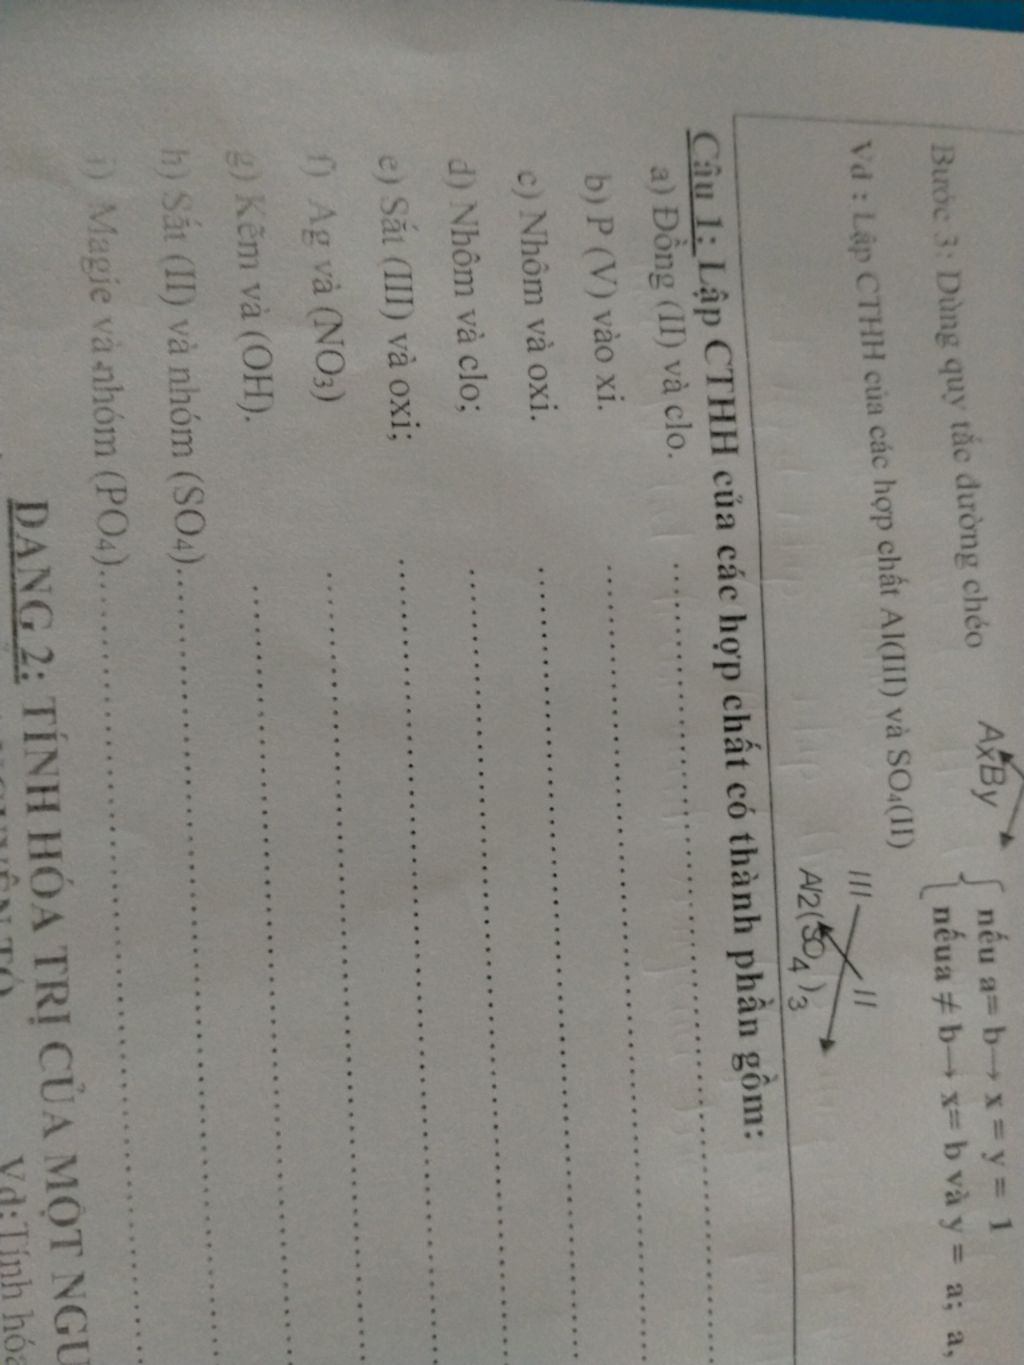 Bước 3: Dùng quy tắc đường chéo AxBy { nếu a= b→ x = y = 1
nếua ≠ b→ x= b và y = a; a,
Vd : Lập CTHH của các hợp chất Al(III) và SO4(II)
III II
Al2(SO4)3
Câu 1: Lập CTHH của các hợp chất có thành phần gồm:
a) Đồng (II) và clo. ................
b) P (V) vào xi. ................
c) Nhôm và oxi. ................
d) Nhôm và clo; ................
e) Sắt (III) và oxi; ................
f) Ag và (NO3) ................
g) Kẽm và (OH). ................
h) Sắt (II) và nhóm (SO4)................
i) Magie và nhóm (PO4)................
DẠNG 2: TÍNH HÓA TRỊ CỦA MỘT NGU
Vd: Tính hóa